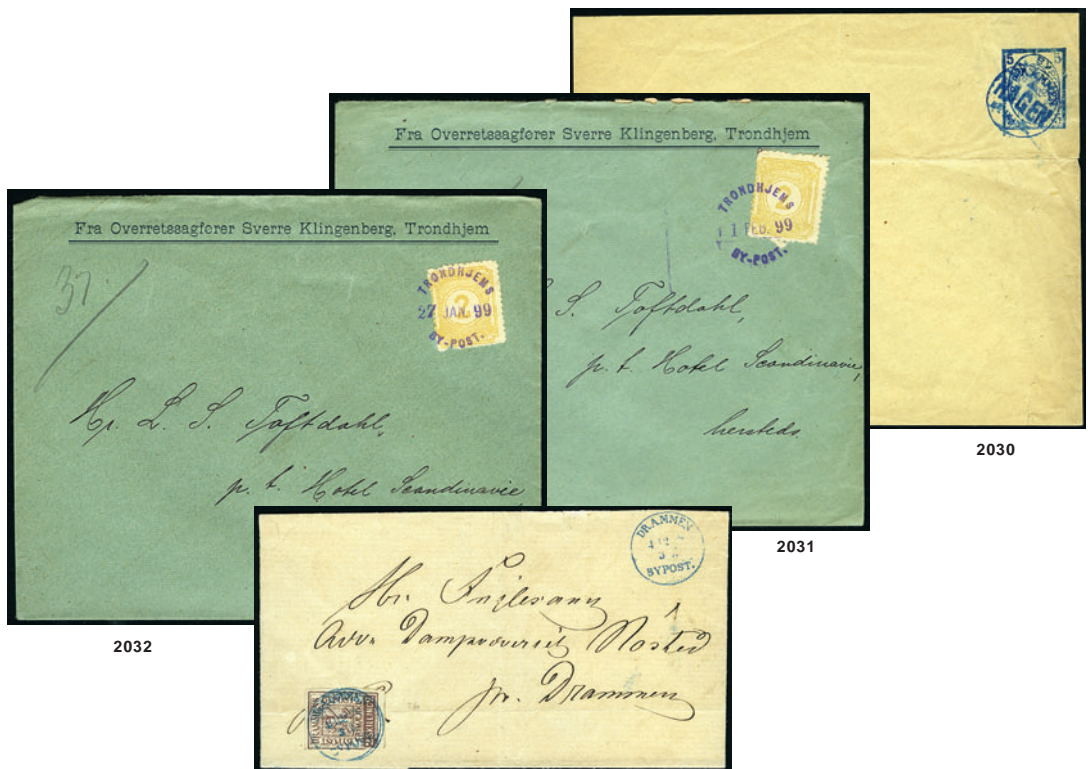 5 5
HAGEN
2030
Fra Overretssagfører Sverre Klingenberg, Trondhjem
TRONDHJEMS
2
1 FEB. 99
BY-POST.
S. Toftdahl,
p. t. Hotel Scandinavie,
hersteds.
2031
Fra Overretssagfører Sverre Klingenberg, Trondhjem
37
TRONDHJEMS
2
27 JAN. 99
BY-POST.
Hr. L. S. Toftdahl,
p. t. Hotel Scandinavie,
2032
DRAMMEN
BYPOST.
Hr.
Dampvæveriet Nøsted
pr. Drammen